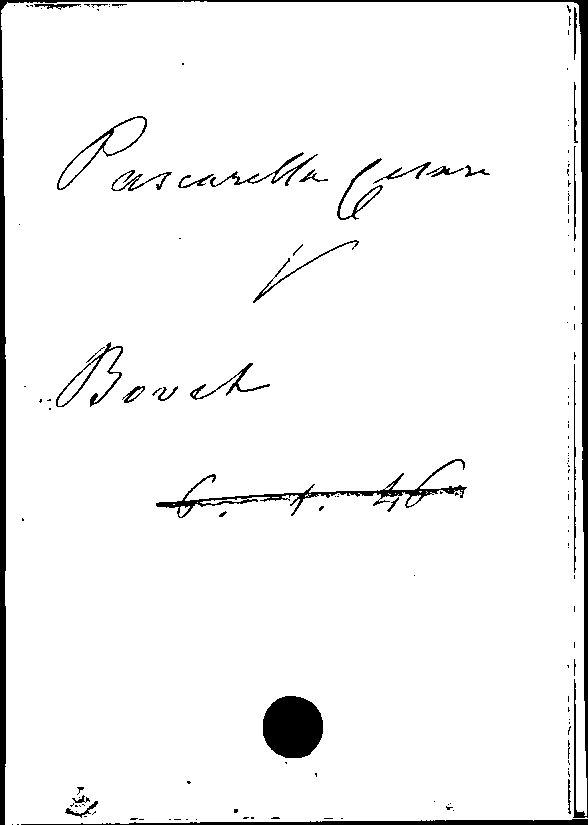 Pascarella Cesare
V
Bovet
6. 1. 46